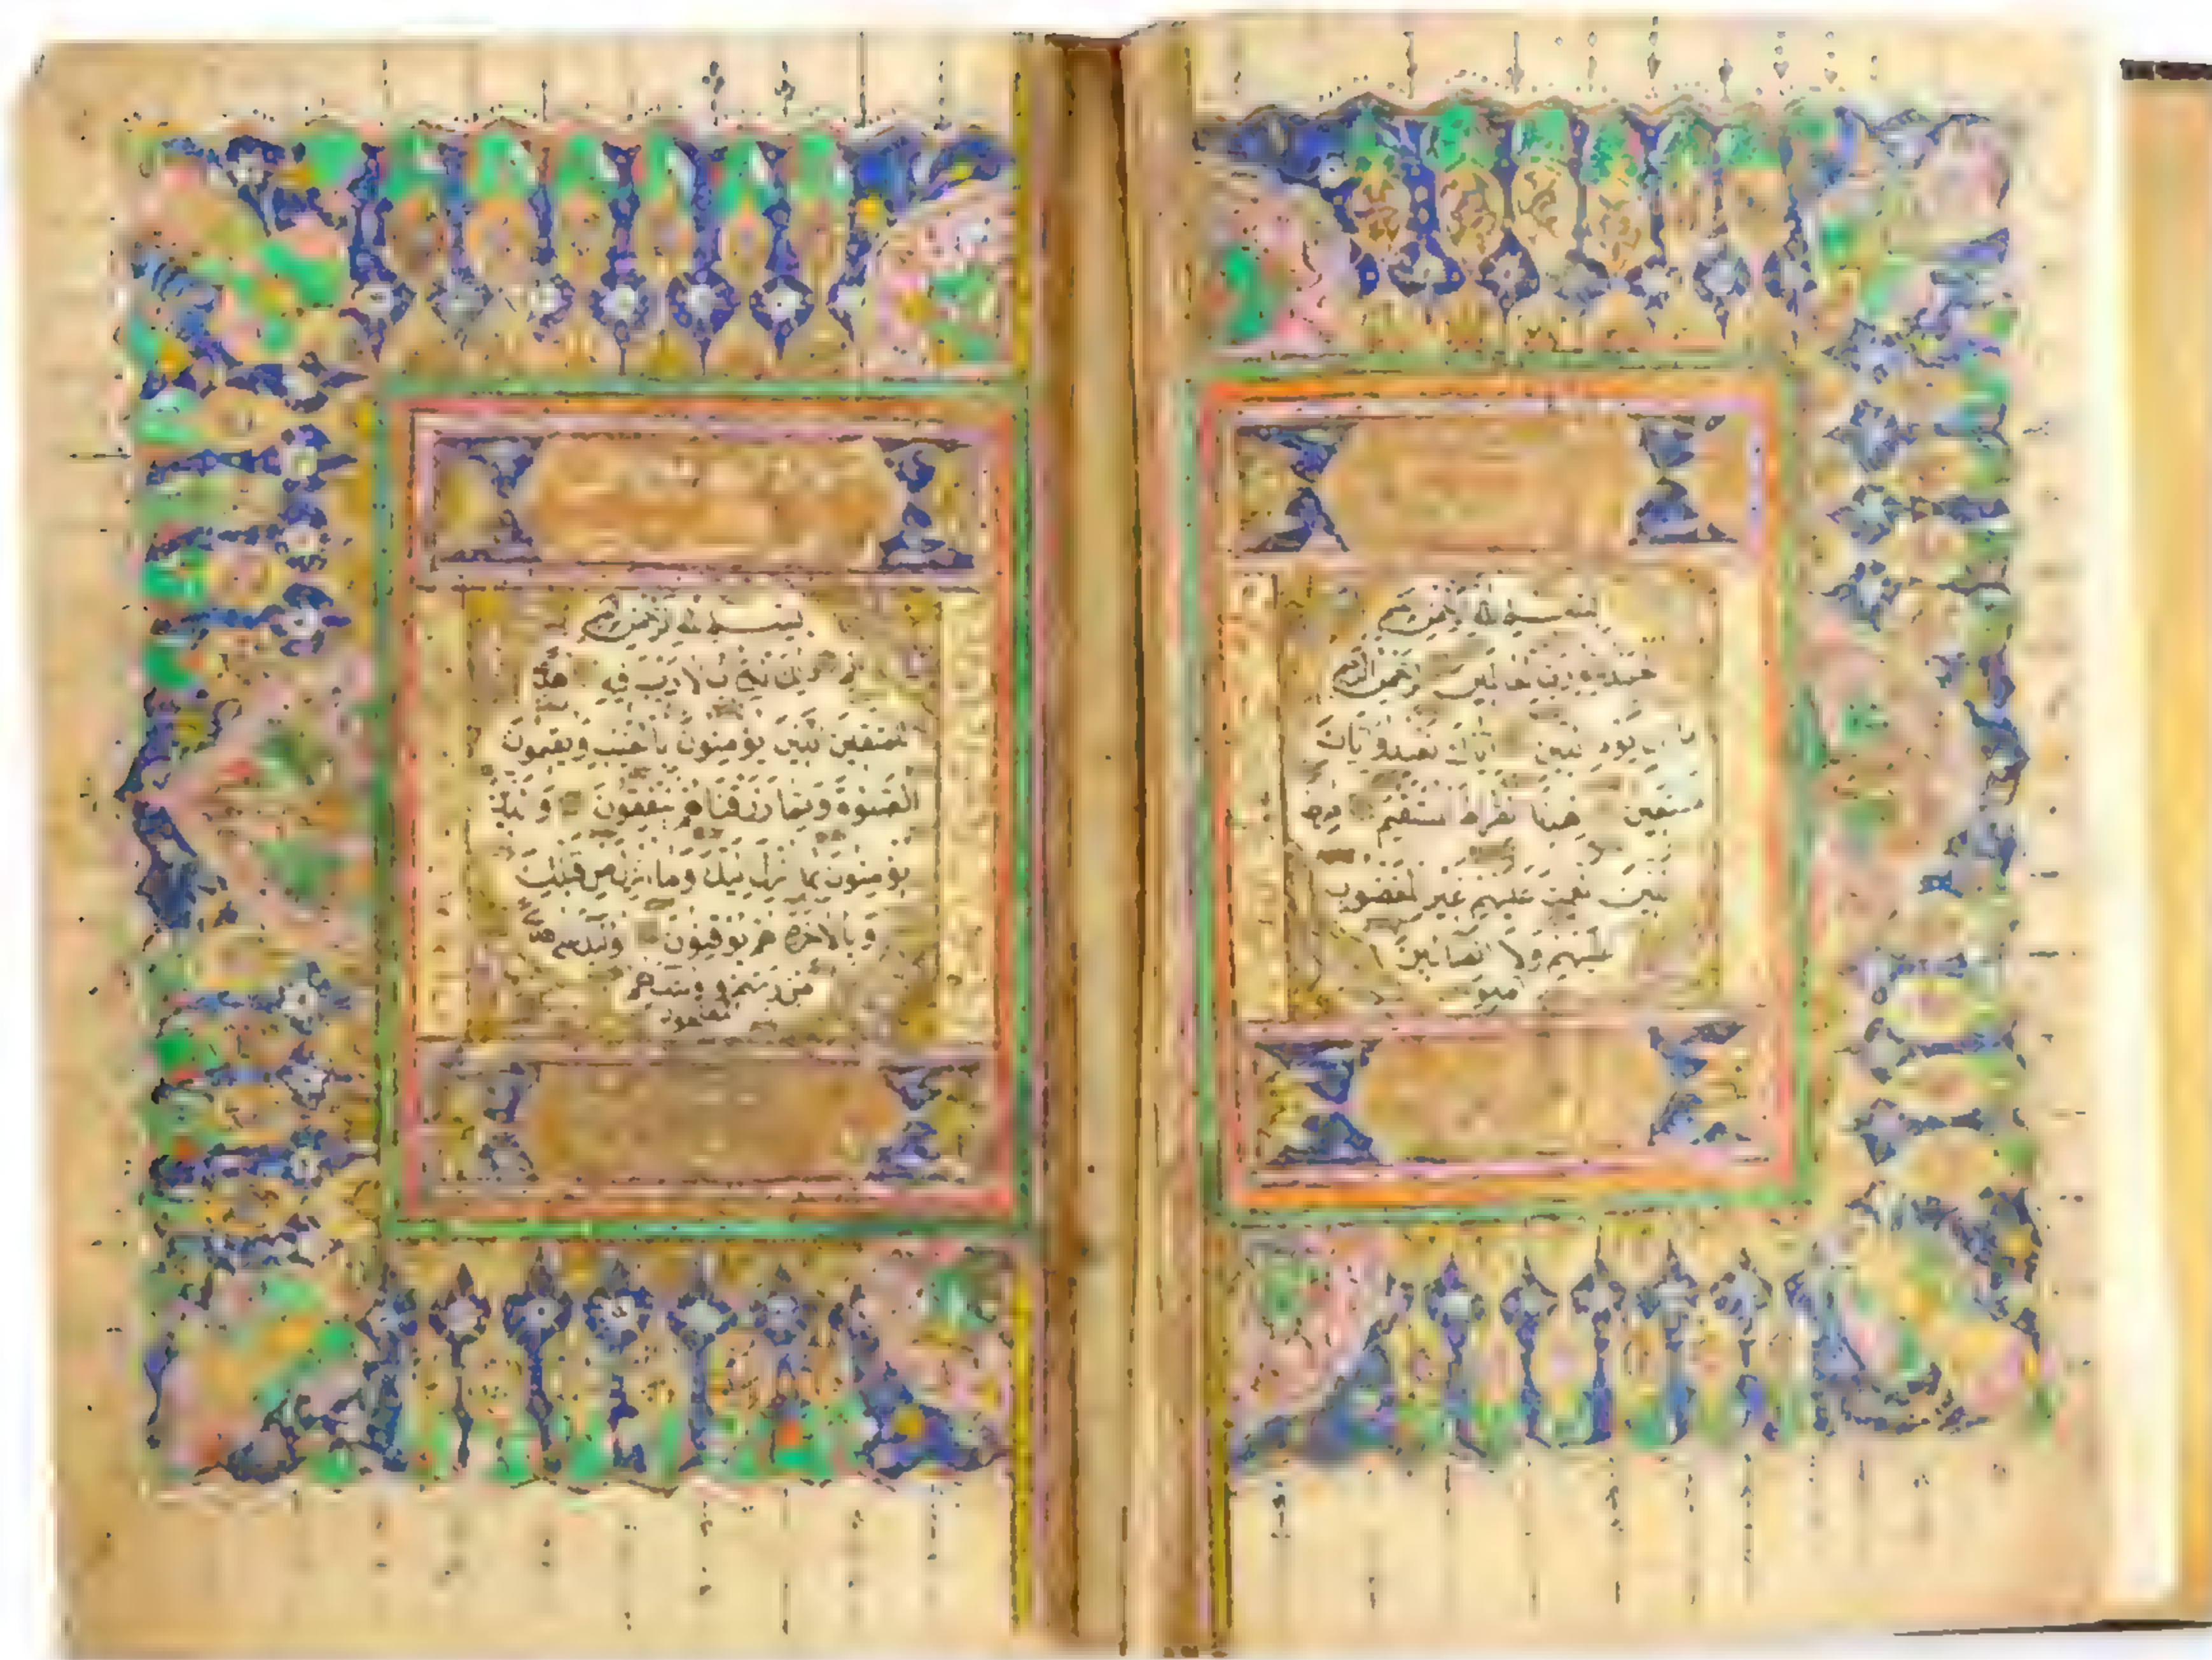 بسم الله الرحمن الرحيم
الحمد لله رب العالمين الرحمن الرحيم
مالك يوم الدين اياك نعبد واياك
نستعين اهدنا الصراط المستقيم صراط
الذين انعمت عليهم غير المغضوب
عليهم ولا الضالين
امين
بسم الله الرحمن الرحيم
الم ذلك الكتاب لا ريب فيه هدى
للمتقين الذين يؤمنون بالغيب ويقيمون
الصلوة ومما رزقناهم ينفقون والذين
يؤمنون بما انزل اليك وما انزل من قبلك
وبالاخرة هم يوقنون اولئك على هدى
من ربهم واولئك هم
المفلحون